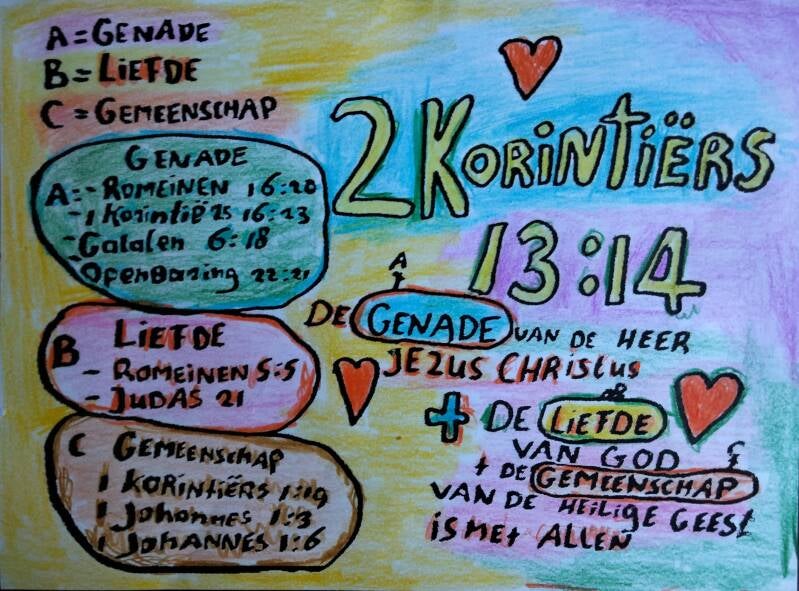 A = GENADE
B = LIEFDE
C = GEMEENSCHAP
GENADE
A: - ROMEINEN 16:20
- 1 Korintiërs 16:23
- Galalen 6:18
- Openbaring 22:21
B LIEFDE
- ROMEINEN 5:5
- JUDAS 21
C GEMEENSCHAP
1 KORINTIËRS 1:19
1 Johannes 1:3
1 JOHANNES 1:6
2 KORINTIËRS
13:14
A
DE GENADE VAN DE HEER
JEZUS CHRISTUS
B
+ DE LIEFDE
VAN GOD
C
+ DE GEMEENSCHAP
VAN DE HEILIGE GEEST
IS MET ALLEN